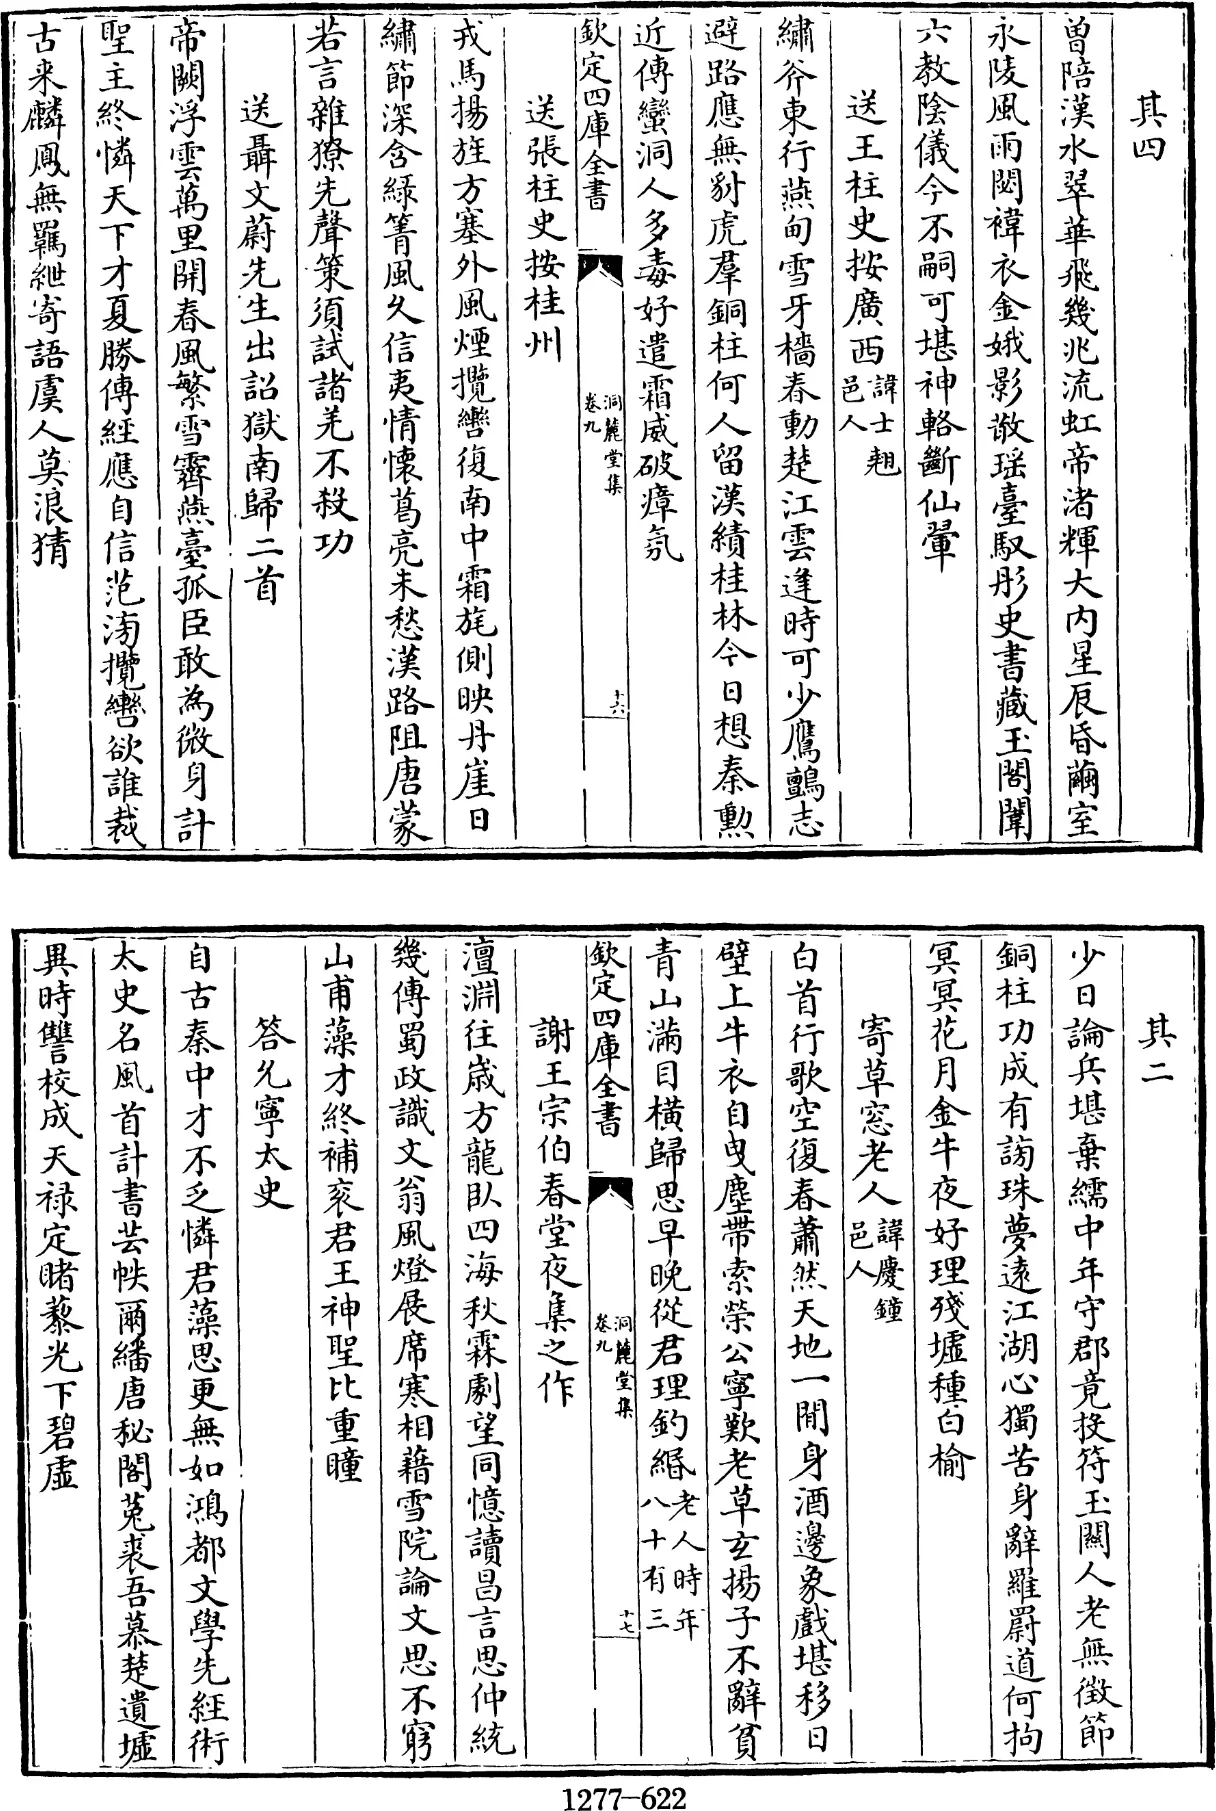 其四
曽陪漢水翠華飛幾兆流虹帝渚輝大内星辰昏繭室
永陵風雨閟褘衣金娥影散瑶臺馭彤史書藏玉閣闈
六教陰儀今不嗣可堪神輅斷仙翬
送王柱史按廣西諱士翹邑人
繡斧東行燕甸雪牙檣春動楚江雲逢時可少鷹鸇志
避路應無豺虎羣銅柱何人留漢績桂林今日想秦勲
近傳蠻洞人多毒好遣霜威破瘴氛
欽定四庫全書
洞麓堂集
卷九
十六
送張柱史按桂州
戎馬揚旌方塞外風煙攬轡復南中霜旄側映丹崖日
繡節深含緑箐風久信夷情懷葛亮未愁漢路阻唐蒙
若言雜獠先聲策須試諸羌不殺功
送聶文蔚先生出詔獄南歸二首
帝闕浮雲萬里開春風繁雪霽燕臺孤臣敢為微身計
聖主終憐天下才夏勝傳經應自信范滂攬轡欲誰裁
古来麟鳳無羈紲寄語虞人莫浪猜
其二
少日論兵堪棄繻中年守郡竟投符玉關人老無徴節
銅柱功成有謗珠夢遠江湖心獨苦身辭羅罻道何拘
冥冥花月金牛夜好理殘墟種白榆
寄草窓老人諱慶鐘邑人
白首行歌空復春蕭然天地一閒身酒邊象戲堪移日
壁上牛衣自曳塵帶索榮公寧歎老草玄揚子不辭貧
青山滿目橫歸思早晩從君理釣緡老人時年八十有三
欽定四庫全書
洞麓堂集
卷九
十七
謝王宗伯春堂夜集之作
澶淵往歲方龍臥四海秋霖劇望同憶讀昌言思仲統
幾傳蜀政識文翁風燈展席寒相藉雪院論文思不窮
山甫藻才終補衮君王神聖比重瞳
答允寧太史
自古秦中才不乏憐君藻思更無如鴻都文學先經術
太史名風首計書芸帙爾繙唐秘閣菟裘吾慕楚遺墟
異時讐校成天禄定睹藜光下碧虛
1277-622